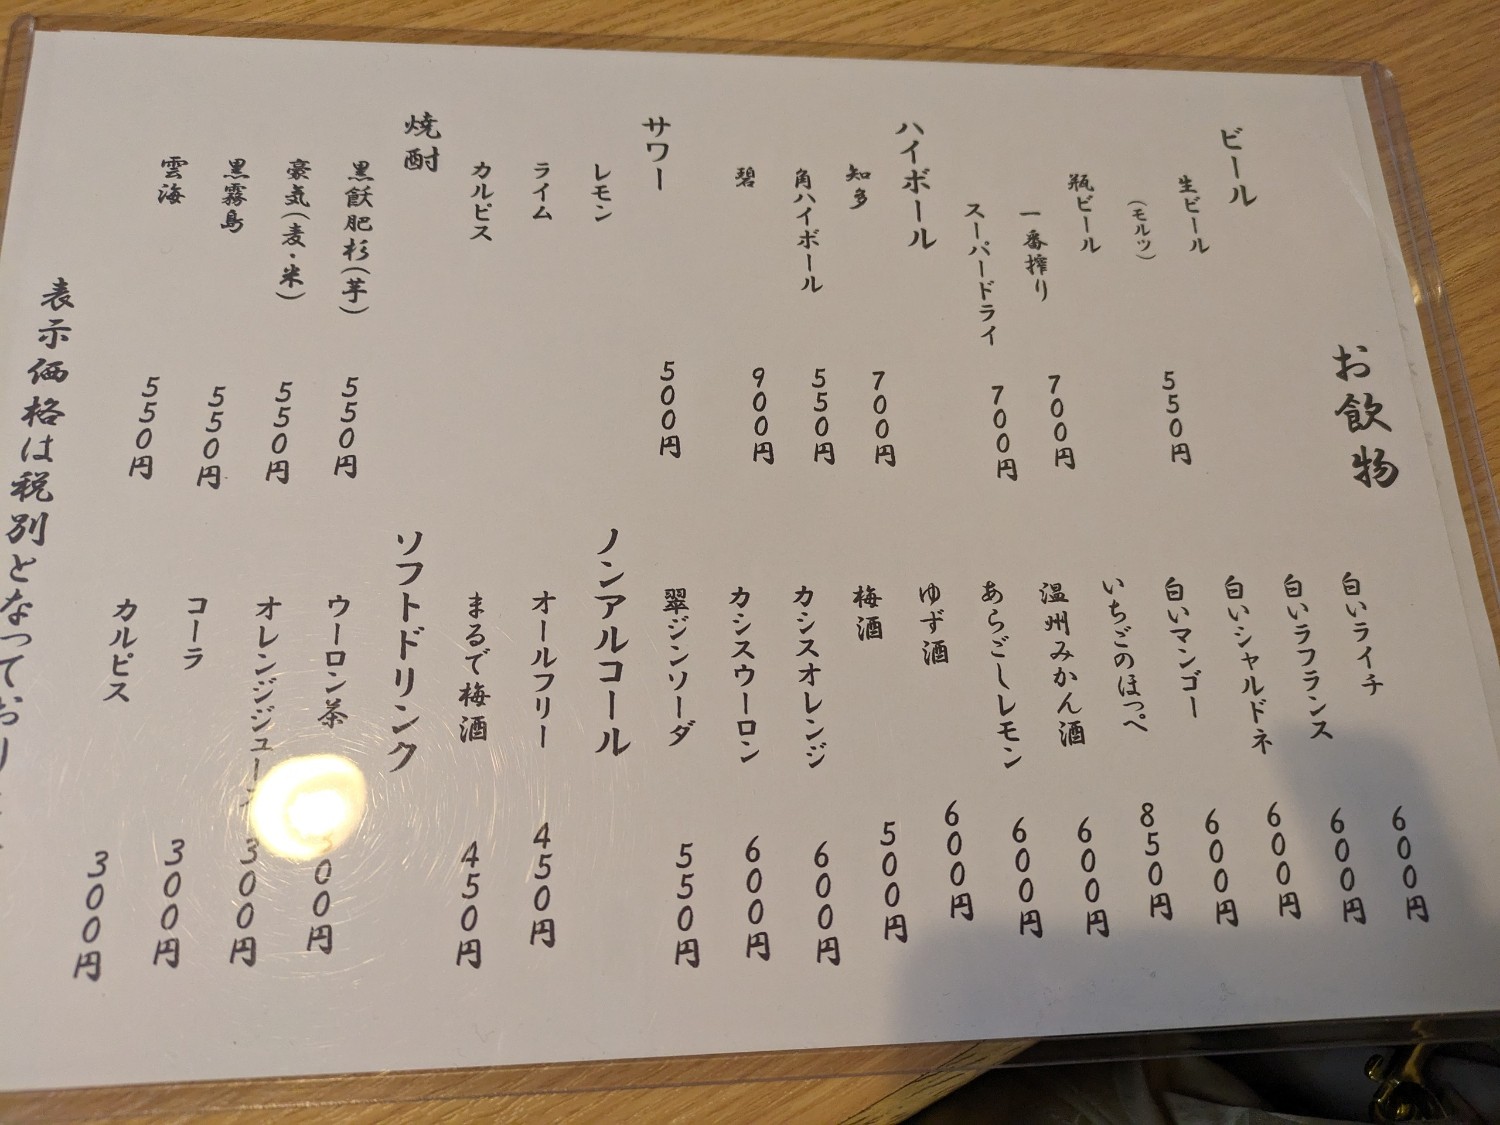 お飲物
ビール
生ビール 550円
(モルツ)
瓶ビール
一番搾り 700円
スーパードライ 700円
ハイボール
知多 700円
角ハイボール 550円
碧 900円
サワー 500円
レモン
ライム
カルピス
焼酎
黒飫肥杉(芋) 550円
豪気(麦・米) 550円
黒霧島 550円
雲海 550円
白いライチ 600円
白いラフランス 600円
白いシャルドネ 600円
白いマンゴー 600円
いちごのほっぺ 850円
温州みかん酒 600円
あらごしレモン 600円
ゆず酒 600円
梅酒 500円
カシスオレンジ 600円
カシスウーロン 600円
翠ジンソーダ 550円
ノンアルコール
オールフリー 450円
まるで梅酒 450円
ソフトドリンク
ウーロン茶 300円
オレンジジュース 300円
コーラ 300円
カルピス 300円
表示価格は税別となっており